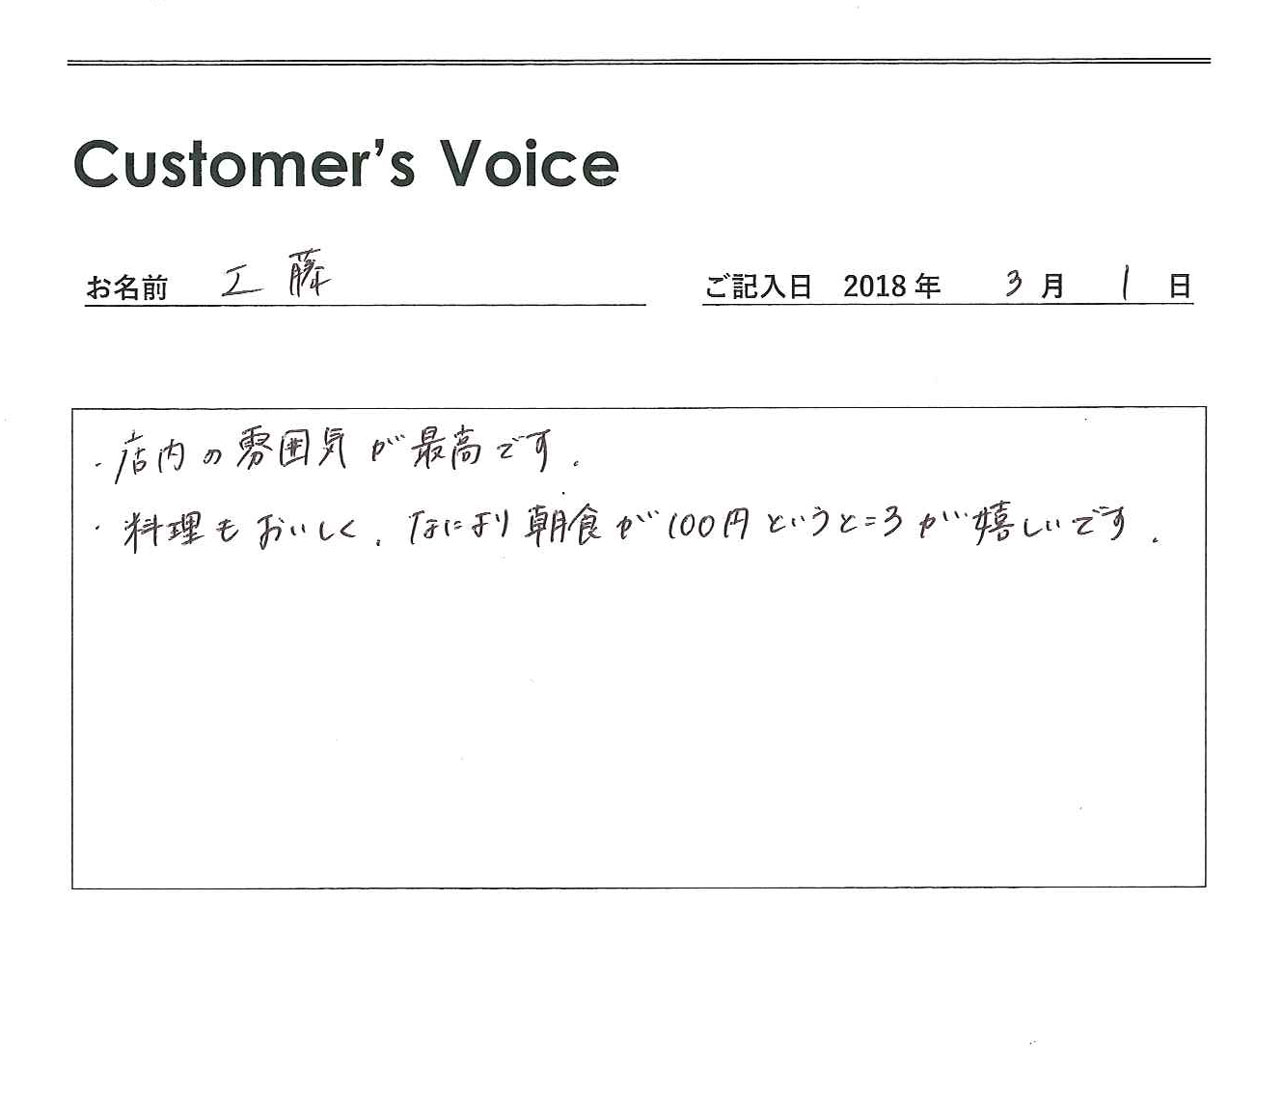 Customer's Voice
お名前 工藤 ご記入日 2018年 3月 1日
・店内の雰囲気が最高です.
・料理もおいしく, なにより朝食が100円というところが嬉しいです.